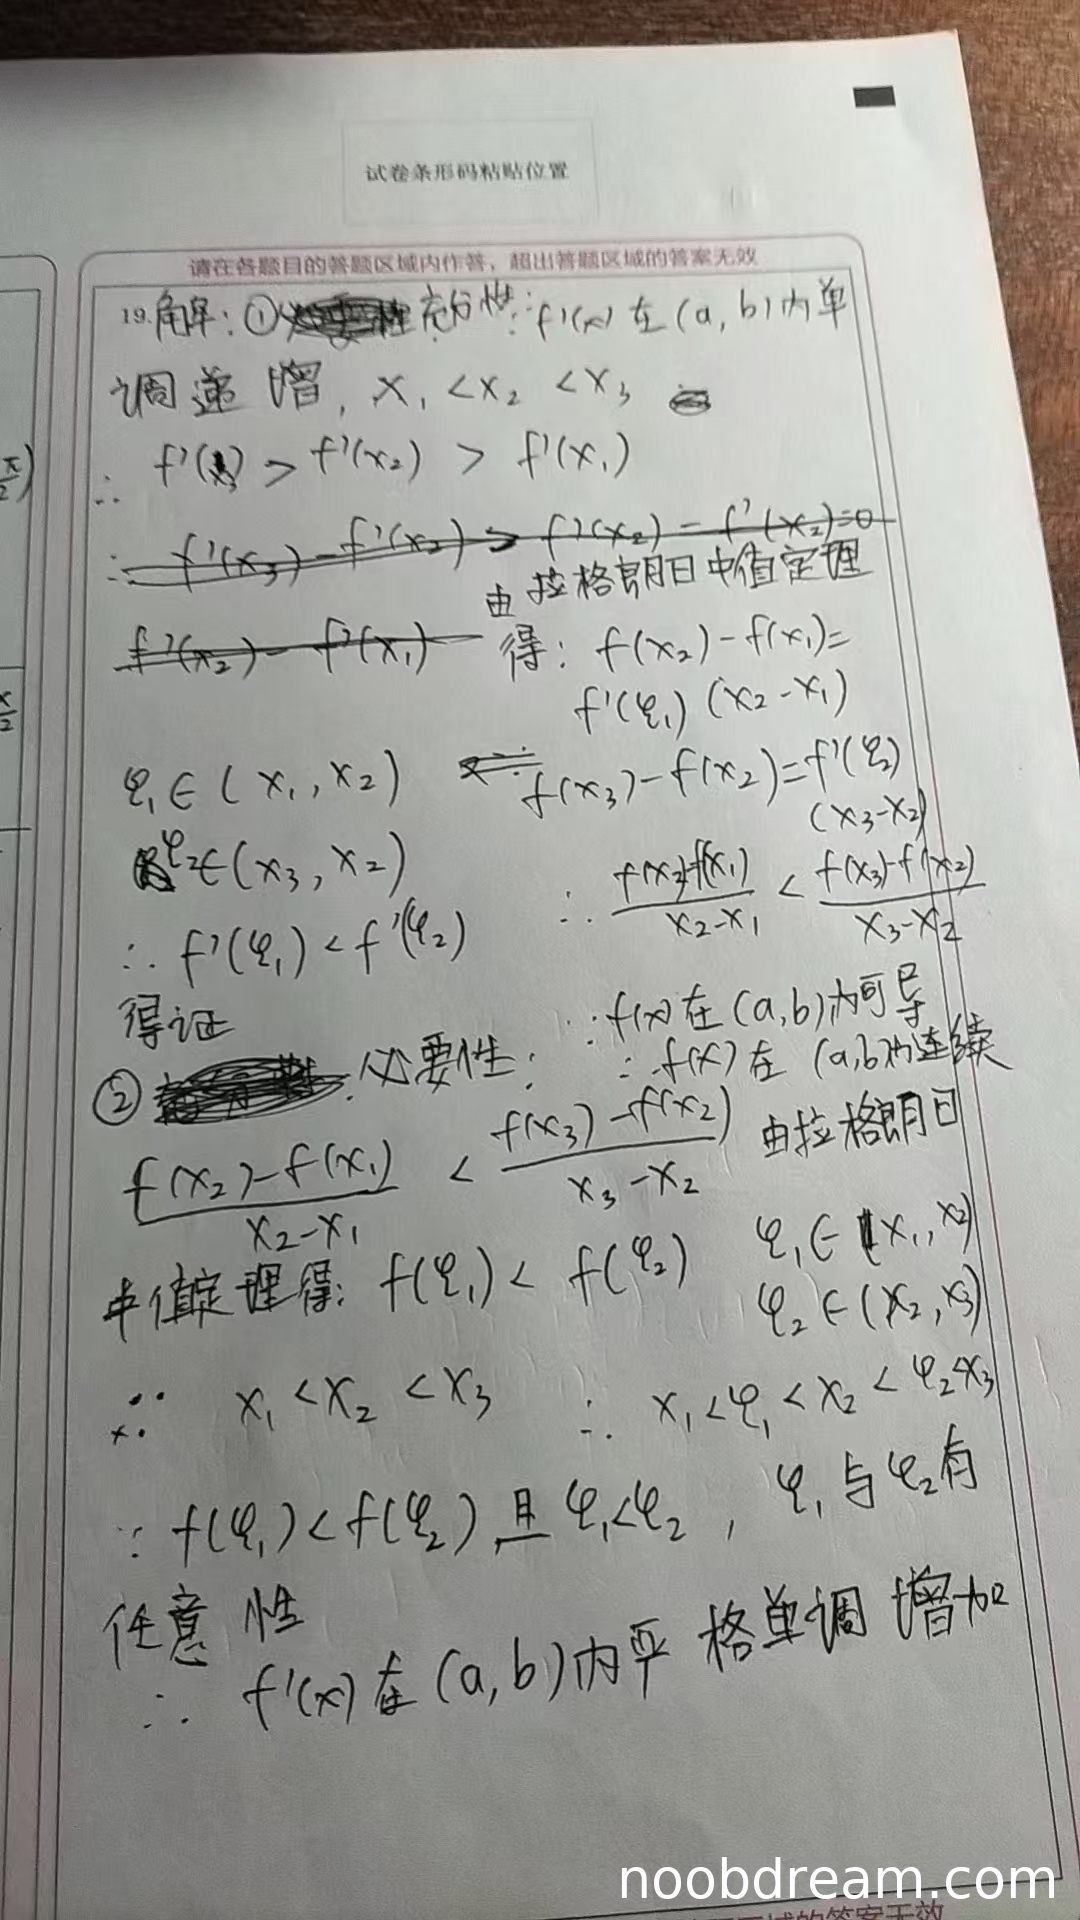 试卷条形码粘贴位置
请在各题目的答题区域内作答，超出答题区域的答案无效
19.解：① 充分性：f'(x)在(a,b)内单
调递增，x₁<x₂<x₃
∴ f'(x₃)>f'(x₂)>f'(x₁)
∴ f'(x₃)-f'(x₂)>f'(x₂)-f'(x₂)=0
由拉格朗日中值定理
f'(x₂)-f'(x₁)
得：f(x₂)-f(x₁)=
f'(φ₁)(x₂-x₁)
φ₁∈(x₁,x₂)
f(x₃)-f(x₂)=f'(φ₂)
(x₃-x₂)
φ₂∈(x₃,x₂)
∴ (f(x₂)-f(x₁))/(x₂-x₁) < (f(x₃)-f(x₂))/(x₃-x₂)
∴ f'(φ₁)<f'(φ₂)
得证
∵f(x)在(a,b)内可导
② 必要性：
∴f(x)在(a,b)内连续
(f(x₂)-f(x₁))/(x₂-x₁) < (f(x₃)-f(x₂))/(x₃-x₂) 由拉格朗日
中值定理得：f(φ₁)<f(φ₂) φ₁∈(x₁,x₂)
φ₂∈(x₂,x₃)
∵ x₁<x₂<x₃ ∴ x₁<φ₁<x₂<φ₂<x₃
∵ f(φ₁)<f(φ₂)且φ₁<φ₂，φ₁与φ₂有
任意性
∴ f'(x)在(a,b)内严格单调增加
π/2)
x/2
noobdream.com
的答案无效